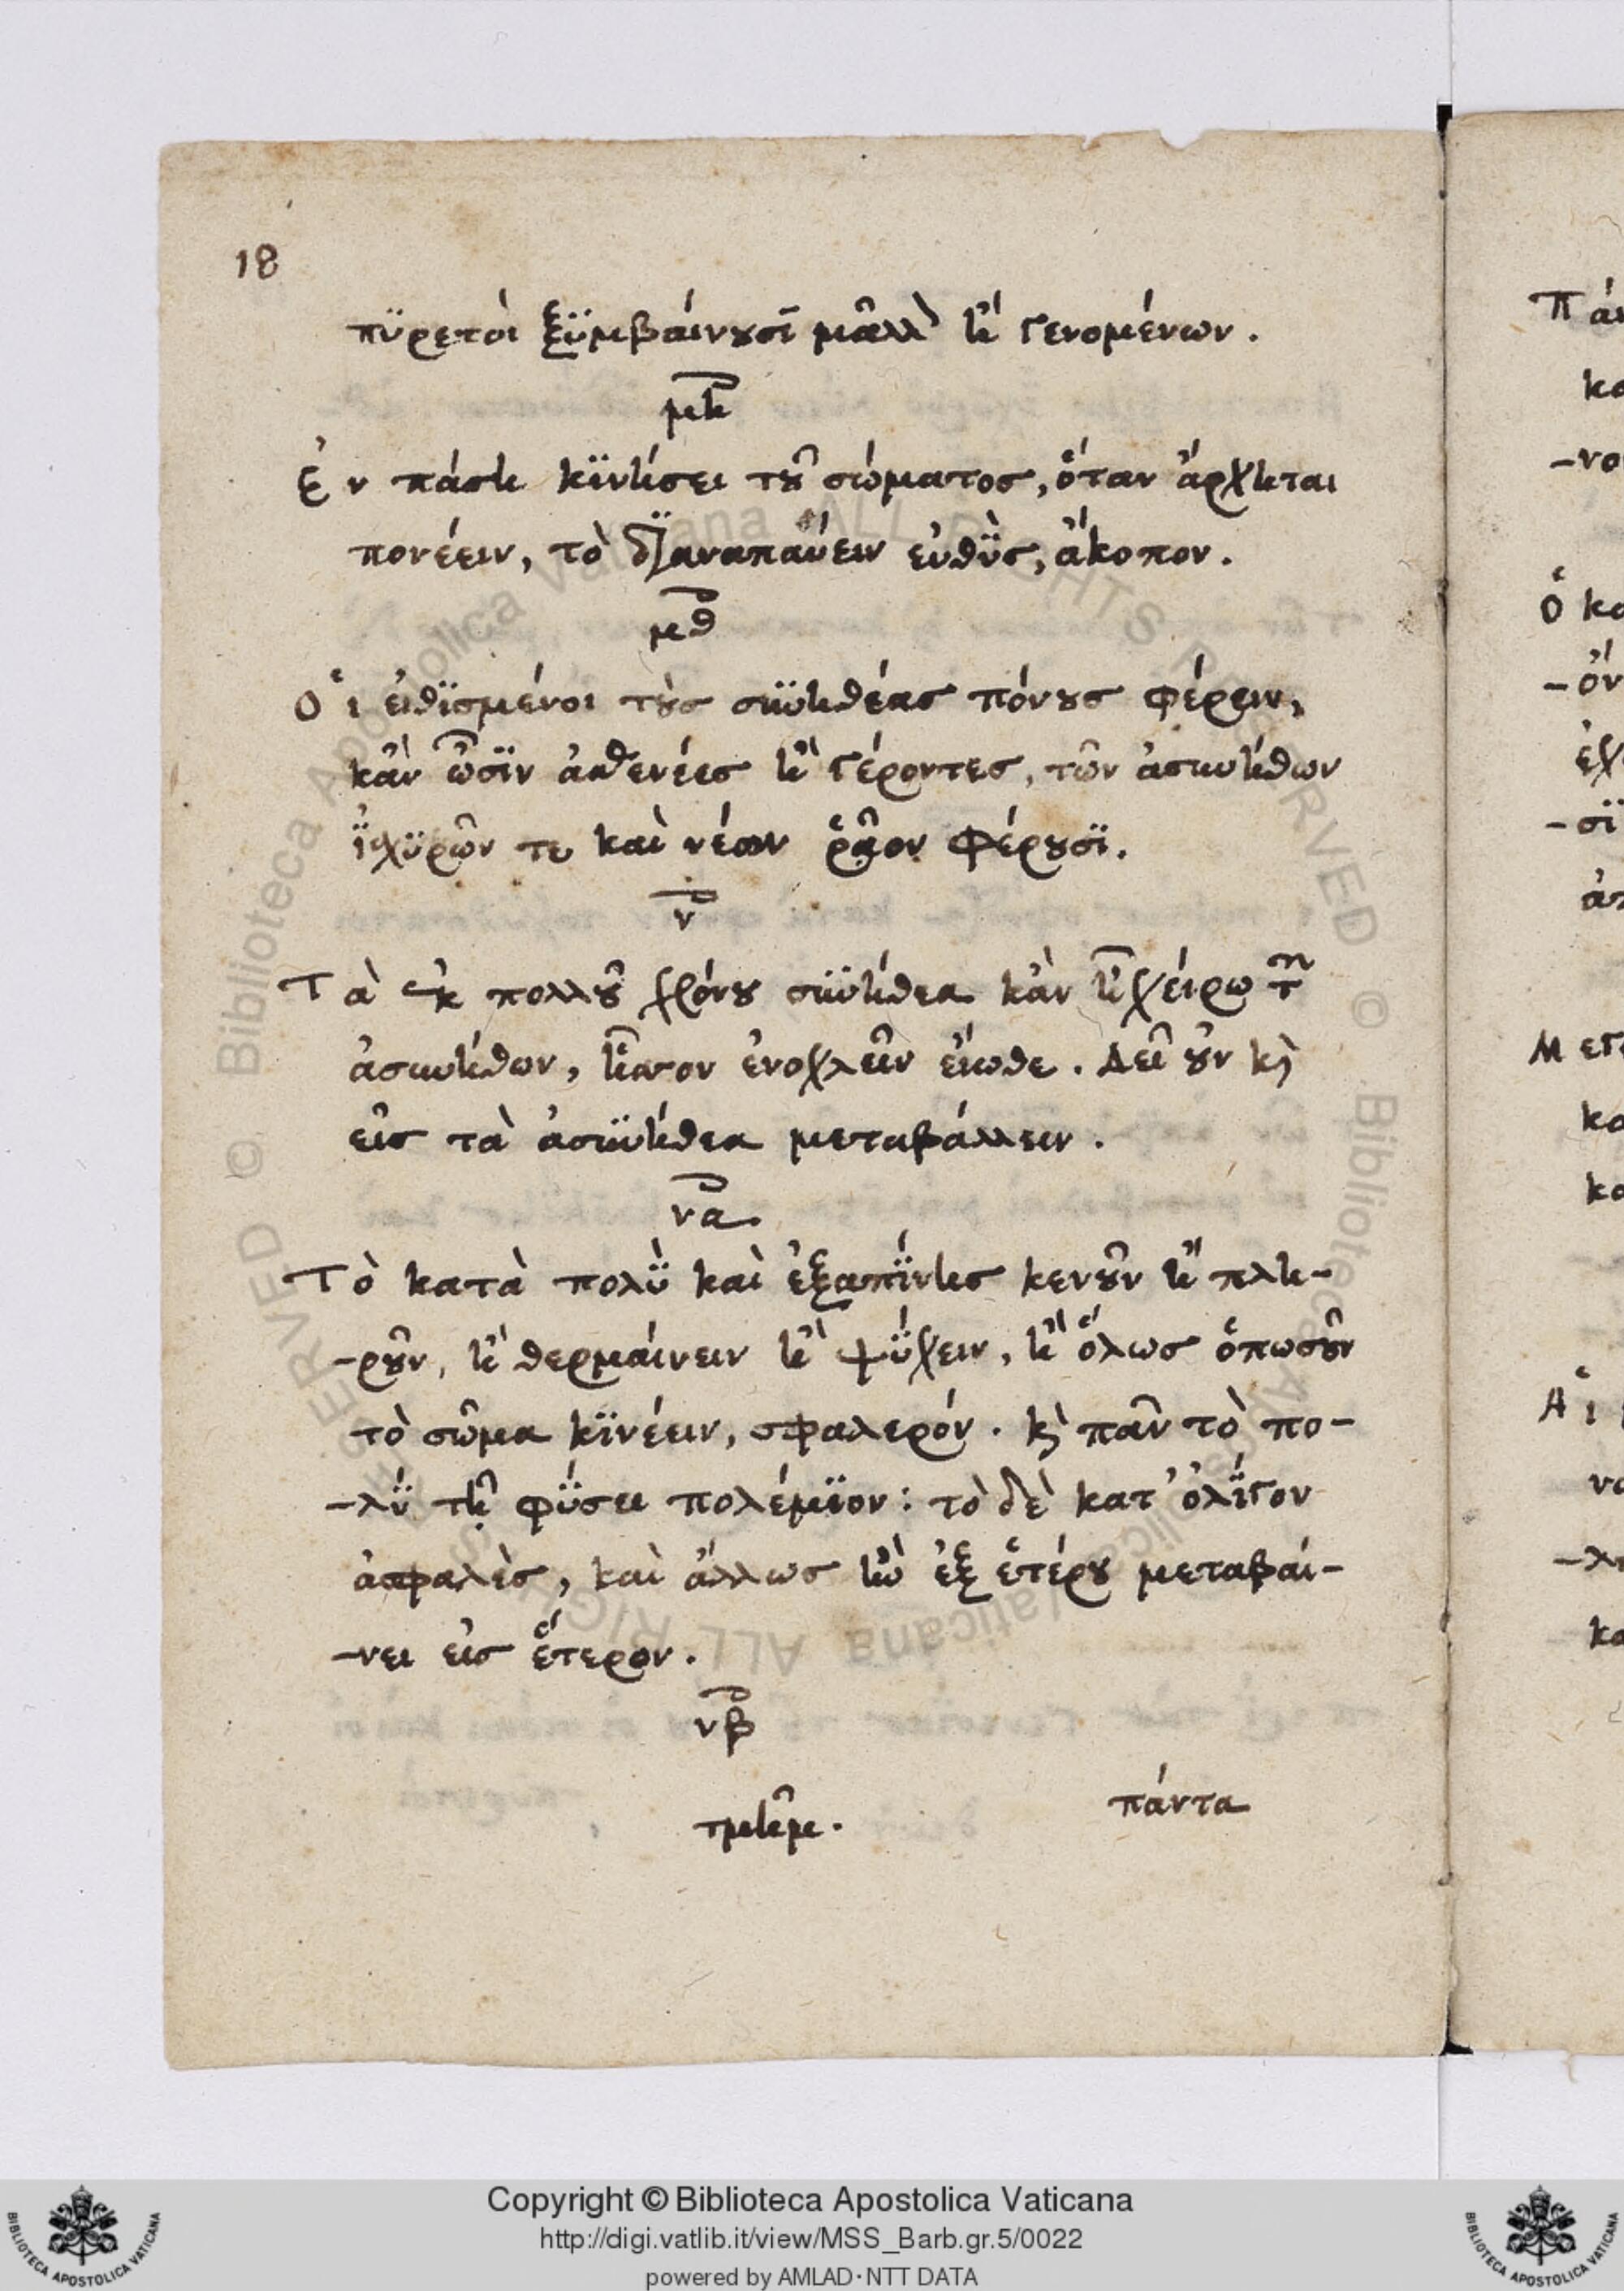 18
πϋρετὸι ξϋμβάινουσϊ μᾶλλὸν ἢ γενομένων.
μη
Ἐν πάσῃ κϊνήσει τοῦ σώματος, ὅταν ἄρχηται
πονέειν, τὸ διαναπαύειν εὐθὺς, ἄκοπον.
μθ
Οἱ εἰθϊσμένοι τοὺς συνηθέας πόνους φέρειν,
κἂν ὦσϊν ἀσθενέες ἢ γέροντες, τῶν ἀσυνήθων
ἰσχϋρῶν τε καὶ νέων ῥᾷον φέρουσϊ.
ν
Τὰ ἐκ πολλοῦ χρόνου συνήθεα κἂν ᾖ χείρω τῶν
ἀσυνήθων, ἧσσον ἐνοχλεῖν εἴωθε. Δεῖ οὖν κὶ
εἰς τὰ ἀσυνήθεα μεταβάλλειν.
να
Τὸ κατὰ πολὺ καὶ ἐξαπίνης κενοῦν ἢ πλη-
-ροῦν, ἢ θερμάινειν ἢ ψύχειν, ἢ ὅλως ὁπωσοῦν
τὸ σῶμα κϊνέειν, σφαλερόν. κὶ πᾶν τὸ πο-
-λὺ τῇ φύσει πολέμϊον: τὸ δὲ κατ' ὀλίγον
ἀσφαλὲς, καὶ ἄλλως ἢν ἐξ ἑτέρου μεταβαί-
-νει εἰς ἕτερον.
νβ
τμῆμ.
πάντα
Copyright © Biblioteca Apostolica Vaticana
http://digi.vatlib.it/view/MSS_Barb.gr.5/0022
powered by AMLAD·NTT DATA